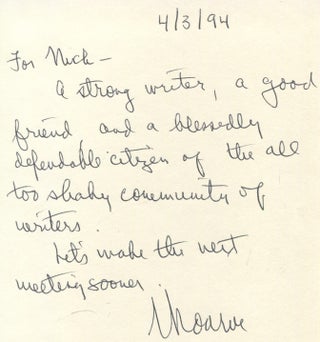 4/3/94
For Nick -
A strong writer, a good
friend and a blessedly
dependable citizen of the all
too shaky community of
writers.
Let's make the next
meeting sooner.